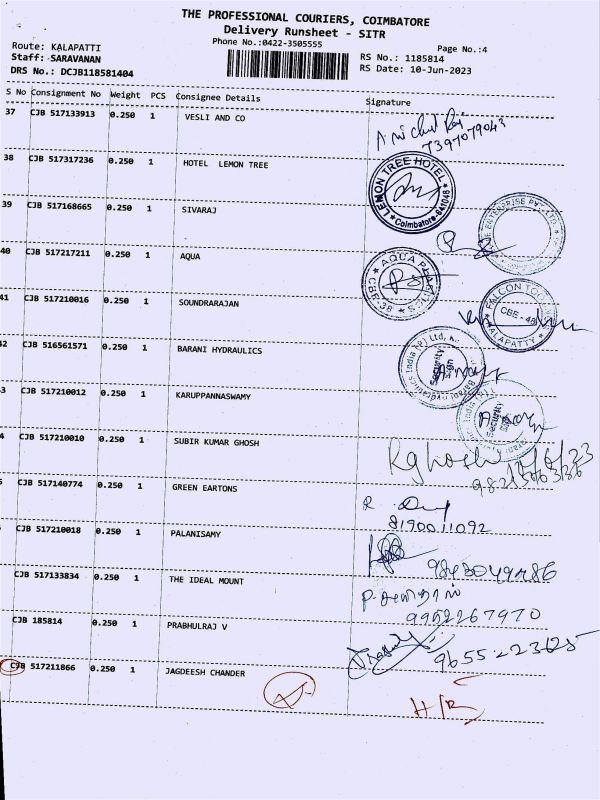 THE PROFESSIONAL COURIERS, COIMBATORE
Delivery Runsheet - SITR
Phone No.:0422-3505555
Route: KALAPATTI
Page No.:4
Staff: SARAVANAN
RS No.: 1185814
DRS No.: DCJB118581404
RS Date: 10-Jun-2023
S No Consignment No Weight PCS Consignee Details Signature
37 CJB 517133913 0.250 1 VESLI AND CO
7397079043
38 CJB 517317236 0.250 1 HOTEL LEMON TREE
LEMON TREE HOTEL
Coimbatore-641048
39 CJB 517168665 0.250 1 SIVARAJ
40 CJB 517217211 0.250 1 AQUA
AQUA
41 CJB 517210016 0.250 1 SOUNDRARAJAN
FALCON
CBE - 48
KALAPATTY
42 CJB 516561571 0.250 1 BARANI HYDRAULICS
India (P) Ltd,
Security
3 CJB 517210012 0.250 1 KARUPPANNASWAMY
Security
4 CJB 517210010 0.250 1 SUBIR KUMAR GHOSH
CJB 517140774 0.250 1 GREEN EARTONS
8190011092
CJB 517210018 0.250 1 PALANISAMY
CJB 517133834 0.250 1 THE IDEAL MOUNT
9952267970
CJB 185814 0.250 1 PRABHULRAJ V
CJB 517211866 0.250 1 JAGDEESH CHANDER